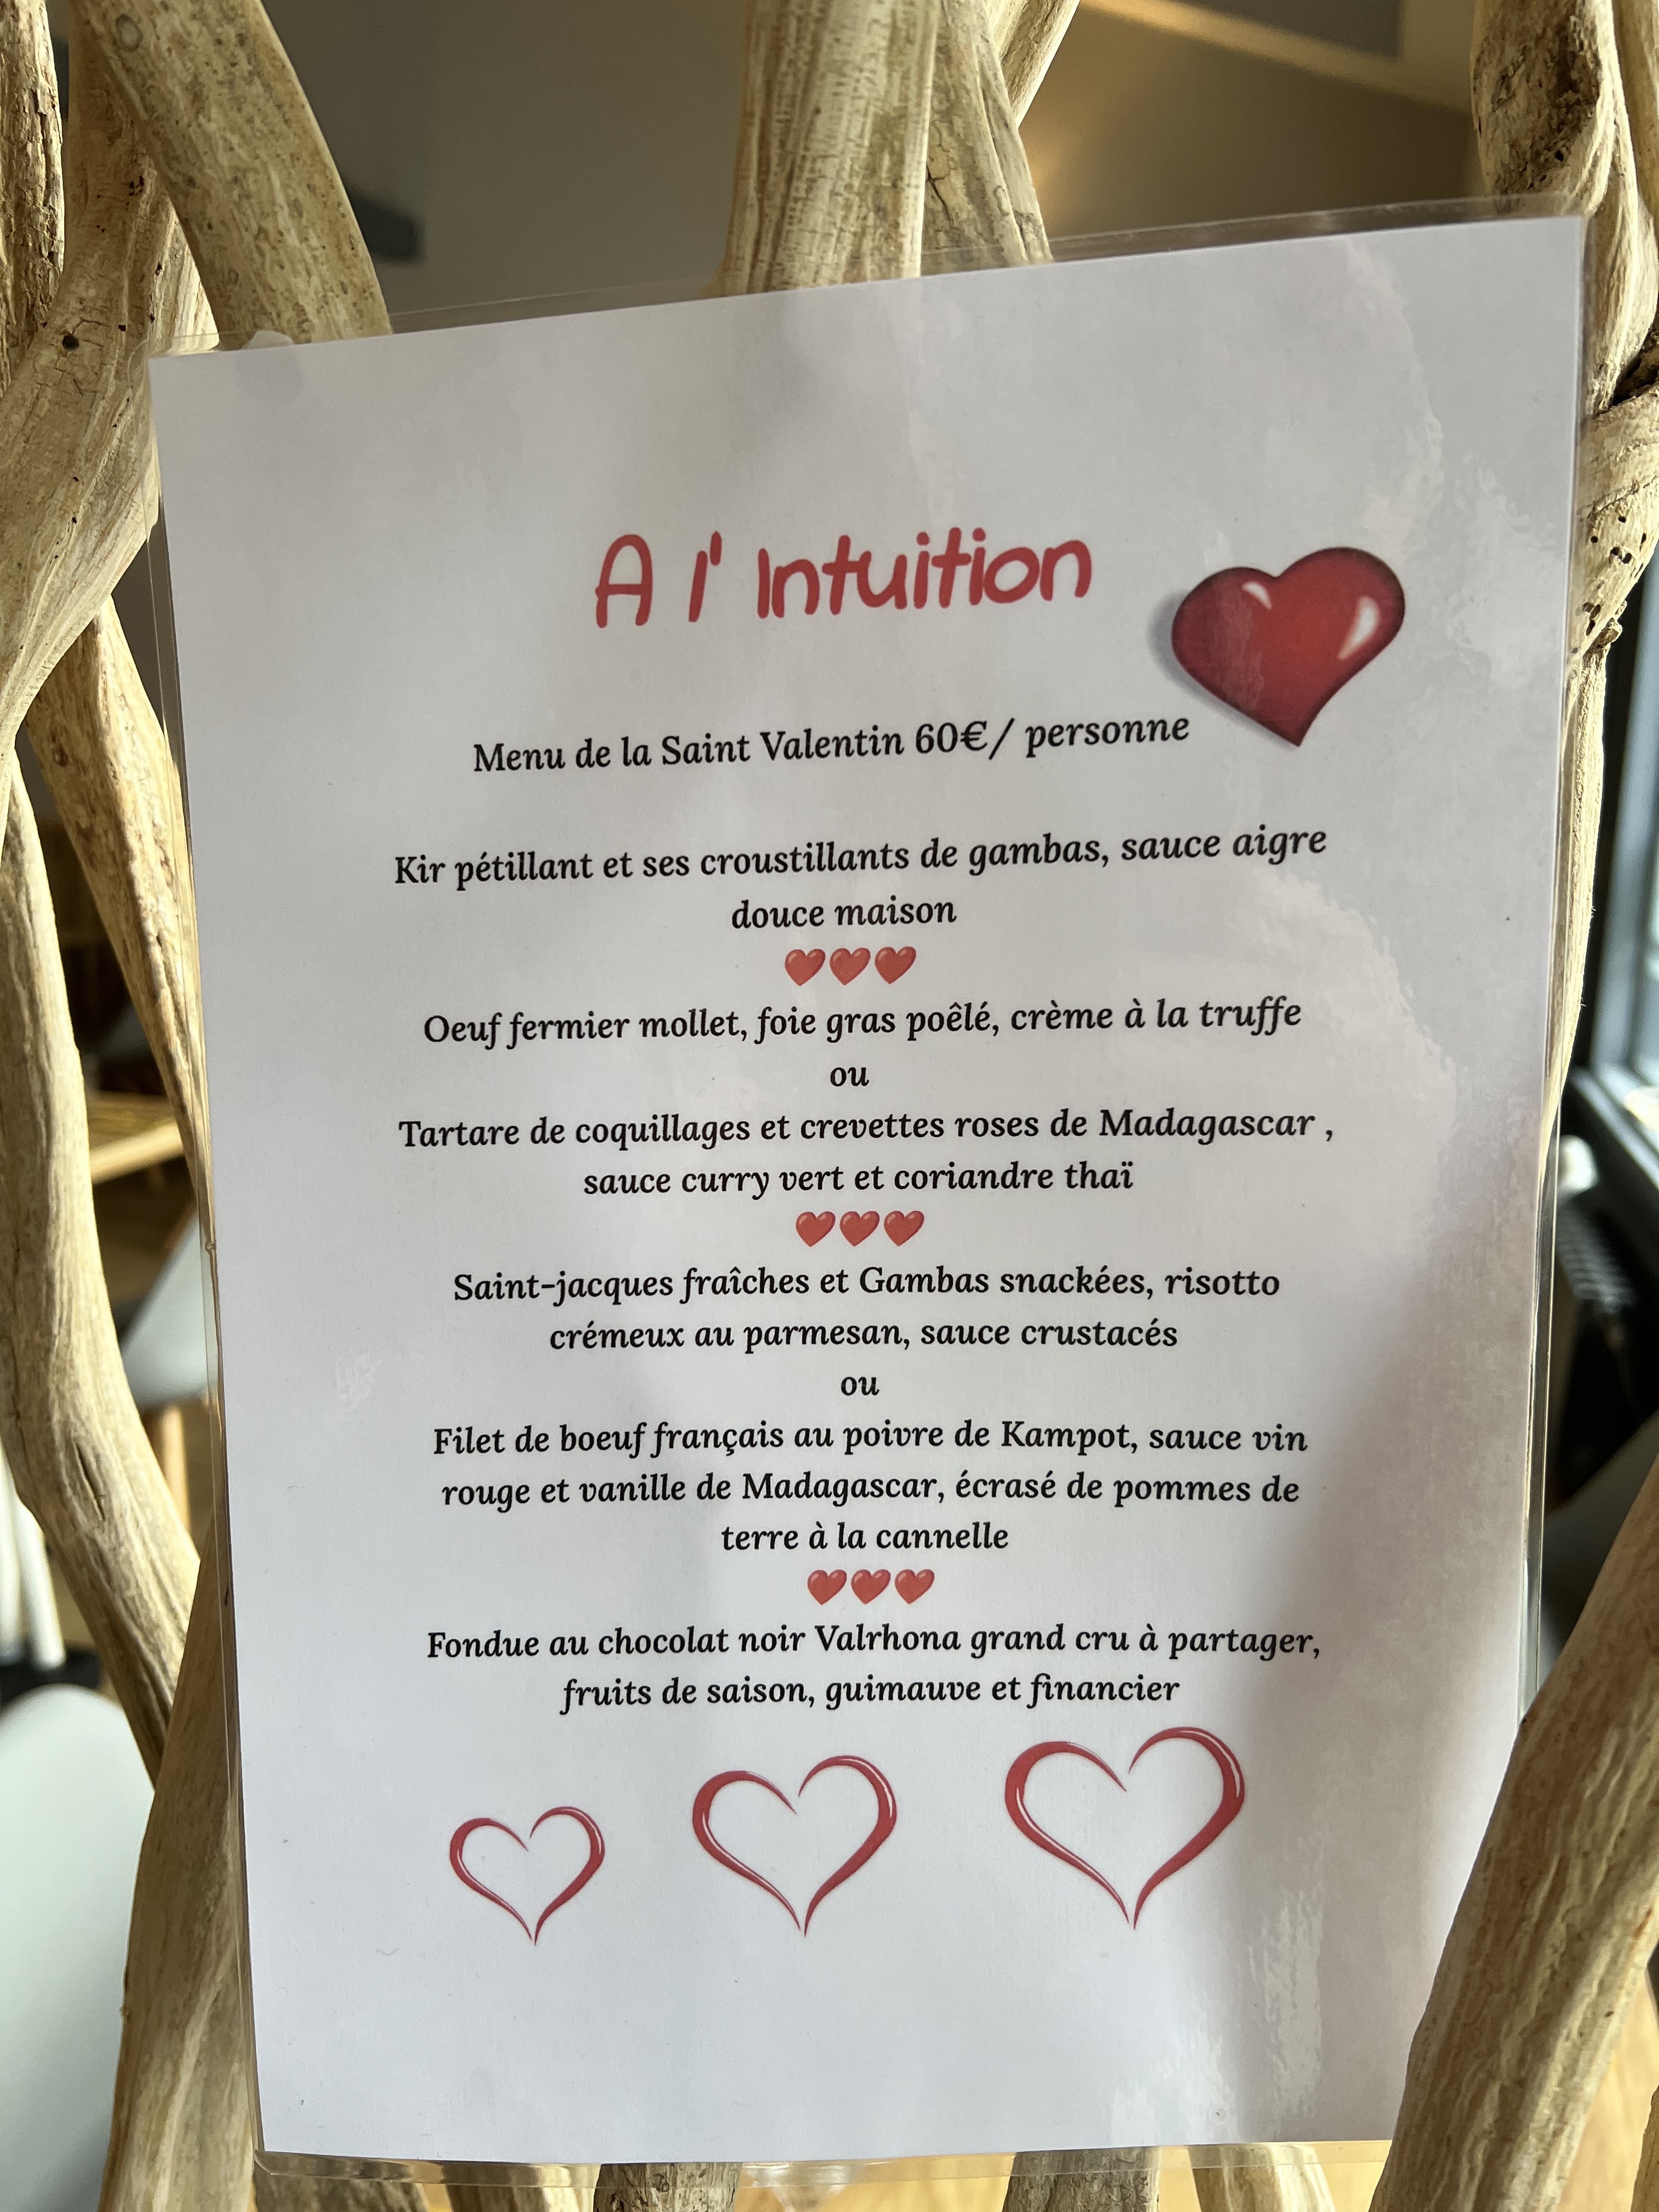 A l' Intuition
Menu de la Saint Valentin 60€/ personne
Kir pétillant et ses croustillants de gambas, sauce aigre
douce maison
Oeuf fermier mollet, foie gras poêlé, crème à la truffe
ou
Tartare de coquillages et crevettes roses de Madagascar ,
sauce curry vert et coriandre thaï
Saint-jacques fraîches et Gambas snackées, risotto
crémeux au parmesan, sauce crustacés
ou
Filet de boeuf français au poivre de Kampot, sauce vin
rouge et vanille de Madagascar, écrasé de pommes de
terre à la cannelle
Fondue au chocolat noir Valrhona grand cru à partager,
fruits de saison, guimauve et financier